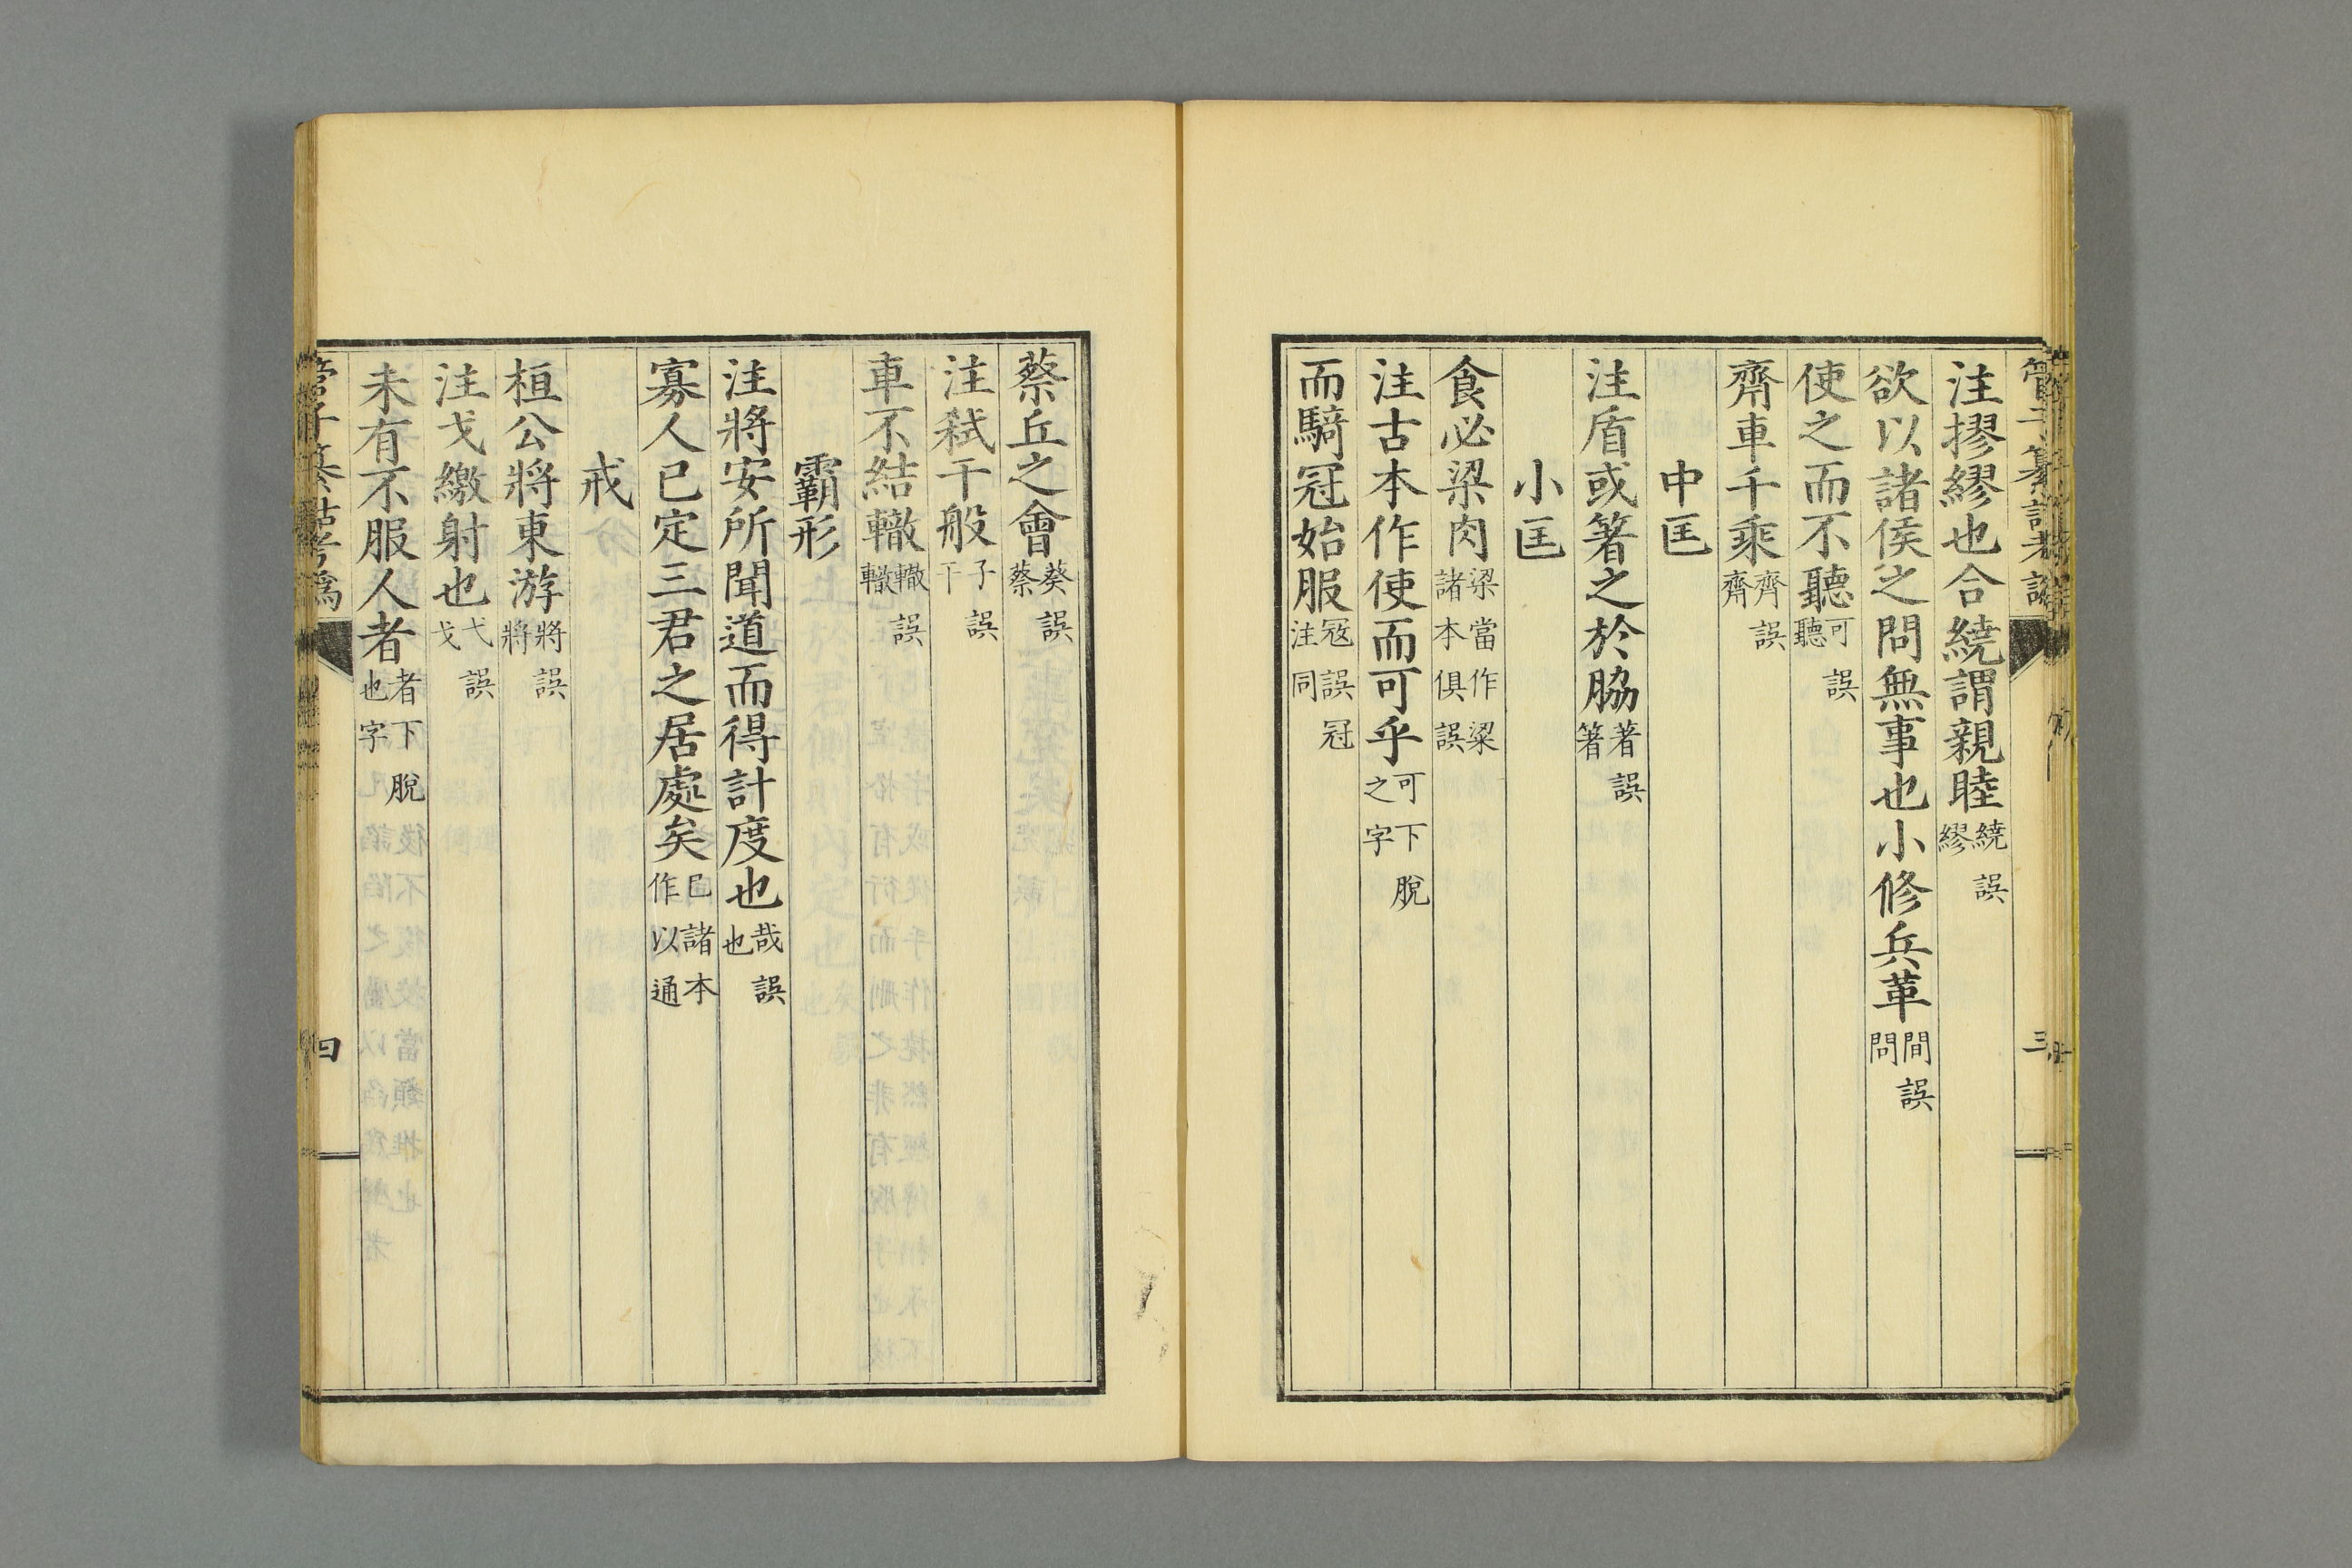 管子纂詁考譌
三
注摎繆也合繞謂親睦繞誤繆
欲以諸侯之問無事也小修兵革間誤問
使之而不聽可誤聽
齊車千乘齊誤齋
中匡
注盾或箸之於脇著誤箸
小匡
食必梁肉梁當作粱諸本俱誤
注古本作使而可乎可下脫之字
而騎冠始服冦誤冠注同
蔡丘之會葵誤蔡
注弒干般子誤干
車不結轍轍誤轍
霸形
注將安所聞道而得計度也哉誤也
寡人已定三君之居處矣已諸本作以通
戒
桓公將東游將誤將
注戈繳射也弋誤戈
未有不服人者者下脫也字
管子纂詁考譌
四